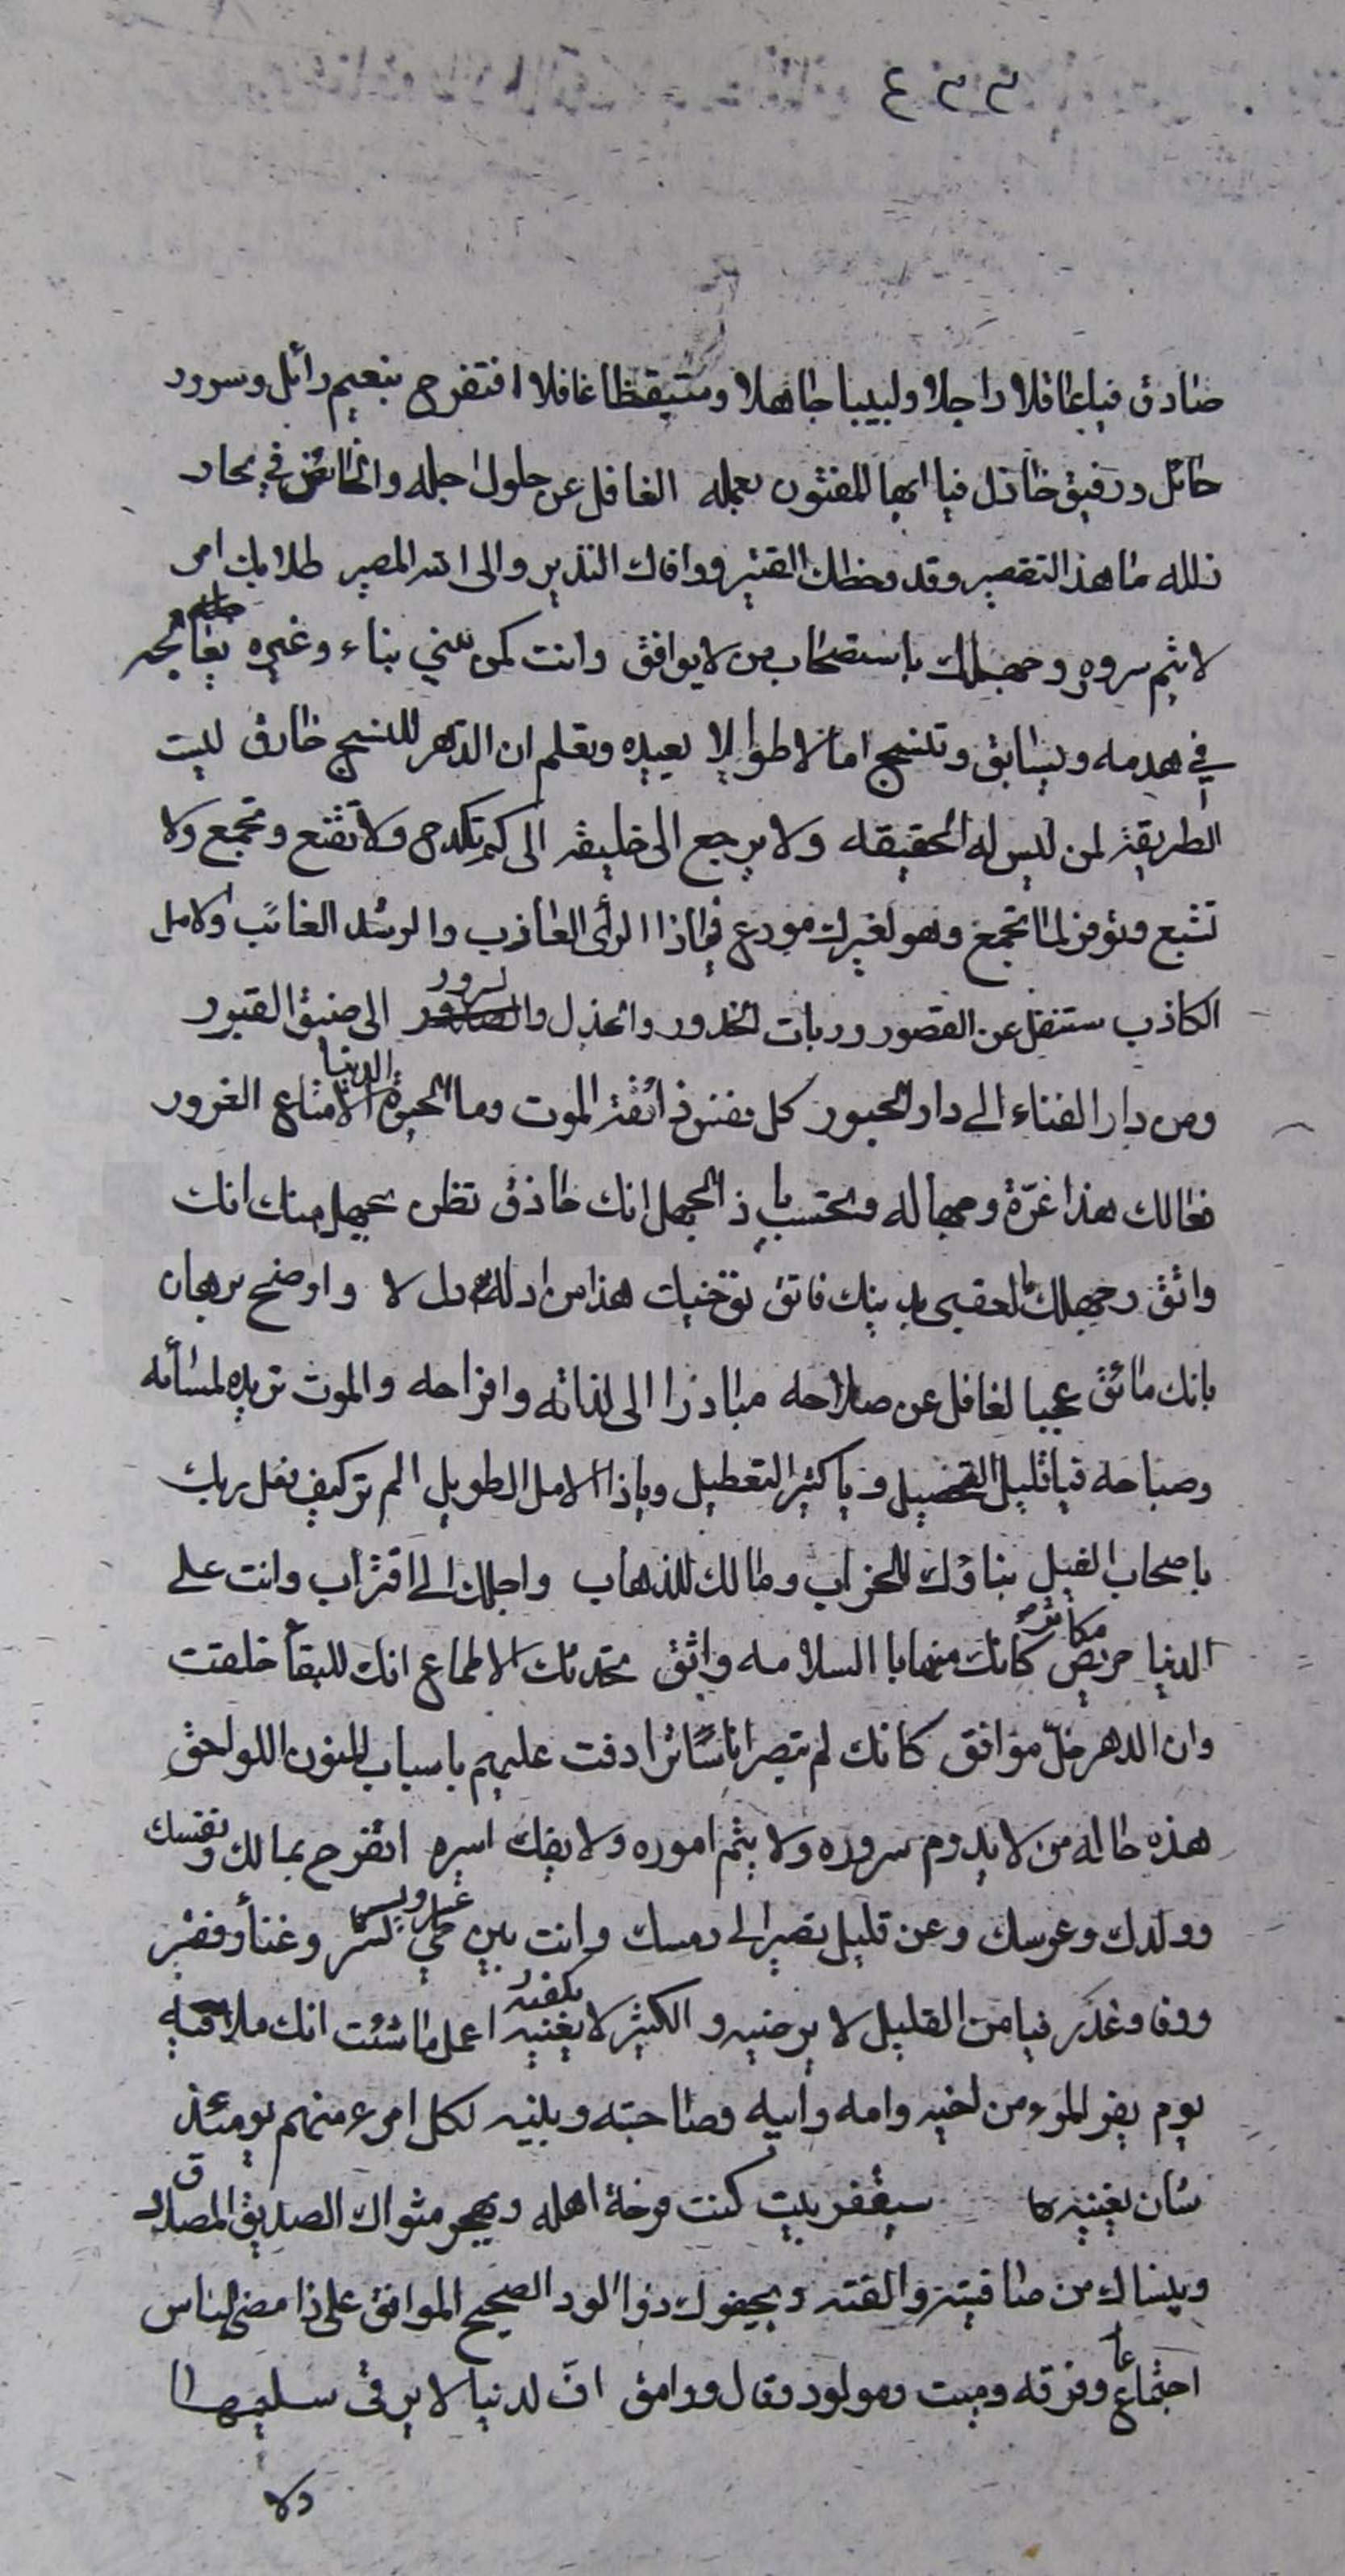 ٤٢٢
صادق فياعاقلا راحلا ولبيبا جاهلا ومتيقظا غافلا افتفرح بنعيم زائل وسرور
حائل ورفيق خاذل فيا ايها المفتون بعمله الغافل عن حلول اجله والخائض في بحار
زلله ما هذا التقصير وقد وخطك القتير ووافاك النذير والى الله المصير طلابك امر
لا يتم سروره وجهلك باستصحاب من لا يوافق وانت كمن يبني بناء وغيره يعاجله
في هدمه ويسابق وتنسج امالا طوالا بعيده وتعلم ان الدهر للنسج خارق ليست
الطريقة لمن ليس له الحقيقه ولا يرجع الى خليقه الى كم تكدح ولا تقنع وتجمع ولا
تشبع وتوفر لما تجمع وهو لغيرك مودع فماذا الرأى العازب والرشد الغائب والامل
الكاذب ستنقل عن القصور وربات الخدور والجذل والسرور الى ضيق القبور
ومن دار الفناء الى دار الحبور كل نفس ذائقة الموت وما الحيوة الدنيا الا متاع الغرور
فعالك هذا غرة وجهاله وتحتسب يا ذ الجهل انك حاذق تظن بجهل منك انك
واثق وجهلك بالعقبى بدينك فاتق توخيك هذا من ادلة دل لا واوضح برهان
بانك مائق عجبا لغافل عن صلاحه مبادرا الى لذاته وافراحه والموت تريده لمسائه
وصباحه فيا قليل التحصيل ويا كثير التعطيل ويا ذا الامل الطويل الم تر كيف فعل ربك
باصحاب الفيل بناؤك للخراب ومالك للذهاب واجلك الى اقتراب وانت على
الدنيا حريص مكاثر كانك منها بالسلامه واثق تحدثك الاطماع انك للبقأ خلقت
وان الدهر خلّ موافق كانك لم تبصر اناسًا ترادفت عليهم باسباب المنون اللواحق
هذه حاله من لا يدوم سروره ولا يتم اموره ولا يفك اسيره اتفرح بمالك ونفسك
وولدك وعرسك وعن قليل تصير الى رمسك وانت بين طي ونشر وغنأ وفقر
ووفا وغدر فيامن القليل لا يرضيه والكثير لا يغنيه اعمل ما شئت انك ملاقيه
يوم يفر المرء من اخيه وامه وابيه وصاحبته وبنيه لكل امرء منهم يومئذ
شان يغنيه سيقفر بيت كنت فرخة اهله ويهجر مثواك الصديق المصادق
وينساك من صافيته والفته ويجفوك ذو الود الصحيح الموافق على ذا مضى الناس
اجتماع وفرقه وميت ومولود وقال ووامق افّ لدنيا لا يرقى سليمها
ولا